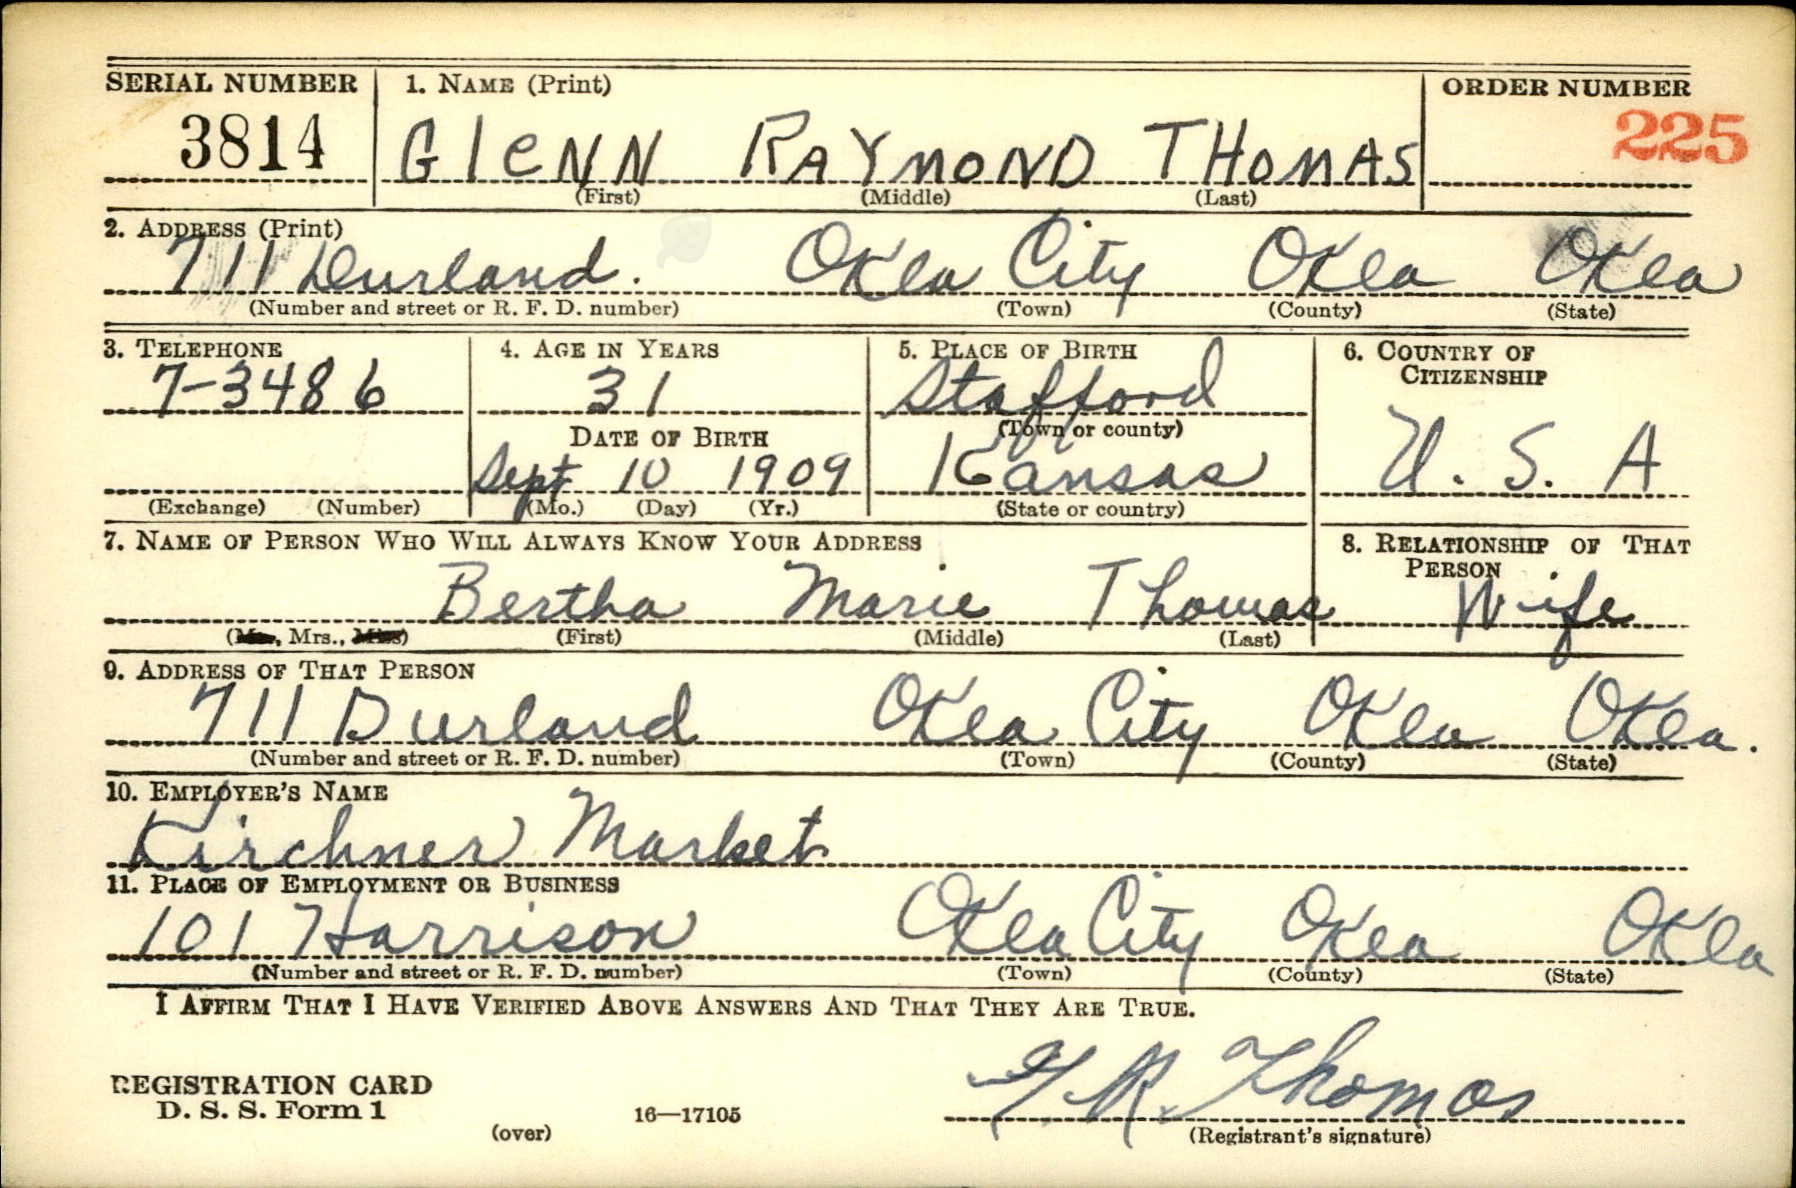 SERIAL NUMBER 1. NAME (Print) ORDER NUMBER
3814 GlENN RAYMOND THOMAS 225
(First) (Middle) (Last)
2. ADDRESS (Print)
711 Durland. Okla City Okla Okla
(Number and street or R. F. D. number) (Town) (County) (State)
3. TELEPHONE 4. AGE IN YEARS 5. PLACE OF BIRTH 6. COUNTRY OF CITIZENSHIP
7-3486 31 Stafford
DATE OF BIRTH (Town or county)
Sept 10 1909 Kansas U. S. A
(Exchange) (Number) (Mo.) (Day) (Yr.) (State or country)
7. NAME OF PERSON WHO WILL ALWAYS KNOW YOUR ADDRESS 8. RELATIONSHIP OF THAT PERSON
Bertha Marie Thomas Wife
(Mr., Mrs., Miss) (First) (Middle) (Last)
9. ADDRESS OF THAT PERSON
711 Durland Okla City Okla Okla.
(Number and street or R. F. D. number) (Town) (County) (State)
10. EMPLOYER'S NAME
Kirchner Market
11. PLACE OF EMPLOYMENT OR BUSINESS
101 Harrison Okla City Okla Okla
(Number and street or R. F. D. number) (Town) (County) (State)
I AFFIRM THAT I HAVE VERIFIED ABOVE ANSWERS AND THAT THEY ARE TRUE.
G R. Thomas
REGISTRATION CARD
D. S. S. Form 1 16—17105
(over) (Registrant's signature)